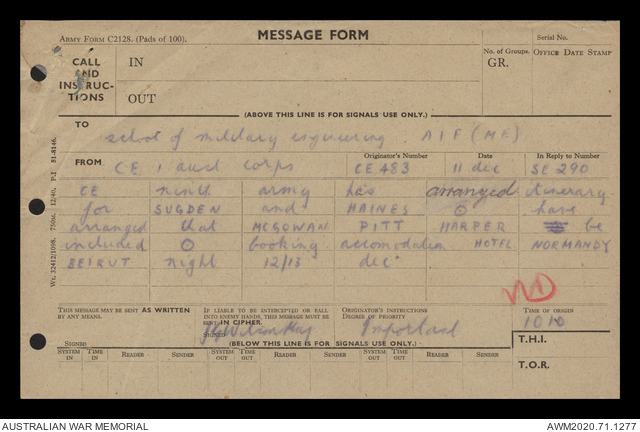 ARMY FORM C2128. (Pads of 100). MESSAGE FORM Serial No.
CALL AND INSTRUC-TIONS IN No. of Groups. GR. OFFICE DATE STAMP
OUT
(ABOVE THIS LINE IS FOR SIGNALS USE ONLY.)
TO
school of military engineering AIF (ME)
FROM Originator's Number Date In Reply to Number
CE 1 aust corps CE 483 11 dec SE 290
CE ninth army has arranged itinerary
for SUGDEN and HAINES ⊙ have
arranged that MCGOWAN PITT HARPER be
included ⊙ booking accomodation HOTEL NORMANDY
BEIRUT night 12/13 dec
Wt. 32412/1098. 750m. 12/40. P.I 51-8146.
ND
THIS MESSAGE MAY BE SENT AS WRITTEN BY ANY MEANS. IF LIABLE TO BE INTERCEPTED OR FALL INTO ENEMY HANDS, THIS MESSAGE MUST BE SENT IN CIPHER. ORIGINATOR'S INSTRUCTIONS DEGREE OF PRIORITY TIME OF ORIGIN
Important 1010
SIGNED SIGNED (BELOW THIS LINE IS FOR SIGNALS USE ONLY.) T.H.I.
SYSTEM IN TIME IN READER SENDER SYSTEM OUT TIME OUT READER SENDER SYSTEM OUT TIME OUT READER SENDER
T.O.R.
AUSTRALIAN WAR MEMORIAL AWM2020.71.1277